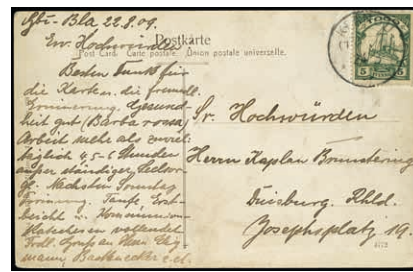 Gbi-Bla 22.8.09.
Ew. Hochwürden
Postkarte
Post Card. Carte postale. Union postale universelle.
TOGO
5 PFENNIG 5
Besten Dank für
die Karten u. die freundl.
Erinnerung. Gesund-
heit gut (Barbarossa)
Arbeit mehr als
täglich 4, 5-6 Stunden
außer ständiger Seelsor-
ge. Nächsten Sonntag
Firmung. Taufe, Erst-
beicht u. Kommunion
vollendet
Gruß an Herrn
Sr. Hochwürden
Herrn Kaplan
Duisburg Rhld.
Josephsplatz 19.